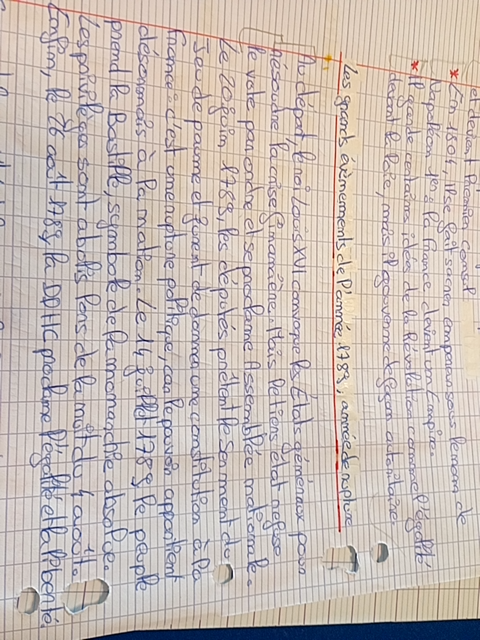 et devient Premier consul
* En 1804, il se fait sacrer empereur sous le nom de
Napoléon 1er : la France devient un Empire.
* Il garde certaines idées de la Révolution comme l'égalité
devant la loi, mais il gouverne de façon autoritaire
Les grands évènements de l'année 1789, année de rupture
Au départ, le roi Louis XVI convoque les États généraux pour
résoudre la crise financière. Mais le tiers état refuse
le vote par ordre et se proclame Assemblée nationale.
Le 20 juin 1789, les députés prêtent le serment du
Jeu de paume et jurent de donner une constitution à la
France : c'est une rupture politique, car le pouvoir appartient
désormais à la nation. Le 14 juillet 1789, le peuple
prend la Bastille, symbole de la monarchie absolue.
Les privilèges sont abolis lors de la nuit du 4 août.
Enfin, le 26 août 1789, la DDHC proclame l'égalité et la liberté.